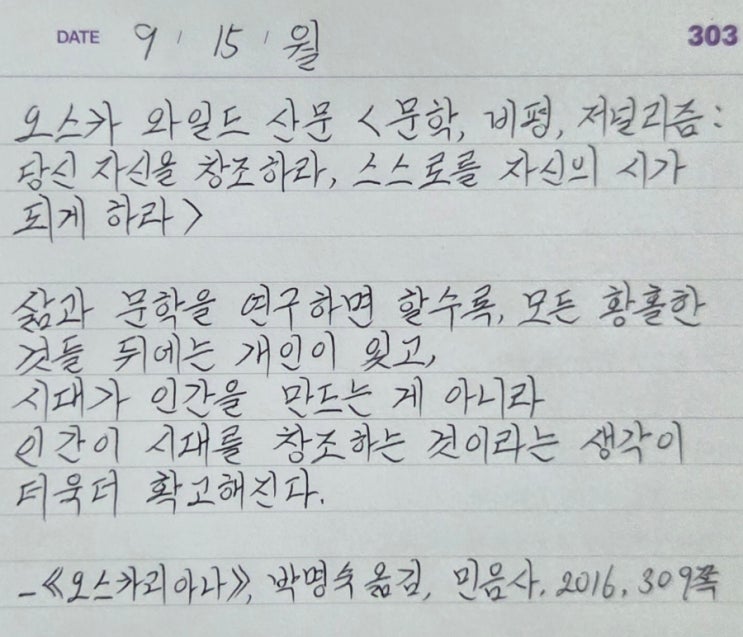 DATE 9 / 15 / 월 303
오스카 와일드 산문 <문학, 비평, 저널리즘:
당신 자신을 창조하라, 스스로를 자신의 시가
되게 하라>
삶과 문학을 연구하면 할수록, 모든 황홀한
것들 뒤에는 개인이 있고,
시대가 인간을 만드는 게 아니라
인간이 시대를 창조하는 것이라는 생각이
더욱더 확고해진다.
-《오스카리아나》, 박명숙 옮김, 민음사, 2016, 309쪽